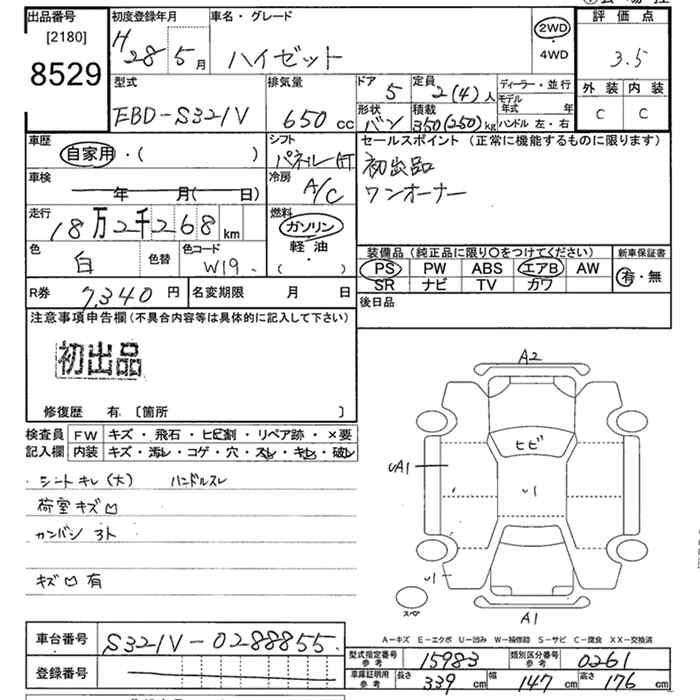 出品番号
[2180]
8529
初度登録年月
H28 5月
車名・グレード
ハイゼット
2WD
・
4WD
評価点
3.5
外装 内装
C C
型式
EBD-S321V
排気量
650 cc
ドア 5
形状 バン
定員 2(4)人
積載 350(250)kg
ディーラー・並行
モデル年式 年
ハンドル 左・右
車歴
自家用・( )
シフト
車検
年 月( 日)
冷房
A/C
走行
18万2千268km
燃料
ガソリン
・
軽油
( )
色
白
色替
色コード
W19.
セールスポイント (正常に機能するものに限ります)
初出品
ワンオーナー
装備品(純正品に限り○をつけてください)
PS PW ABS エアB AW
SR ナビ TV カワ
新車保証書
有・無
R券 7,340円
名変期限 月 日
後日品
注意事項申告欄(不具合内容等は具体的に記入して下さい)
初出品
修復歴 有 〔箇所 〕
検査員
記入欄
FW キズ・飛石・ヒビ割・リペア跡・×要
内装 キズ・汚レ・コゲ・穴・スレ・キレ・破レ
シートキレ(大) ハンドルスレ
荷室キズ凹
カンバン 3ト
キズ凹有
A2
ヒビ
UA1
U1
U1
スペア
A1
A-キズ E-エクボ U-凹み W-補修跡 S-サビ C-腐食 XX-交換済
車台番号 S321V-0288855
登録番号
型式指定番号 参考 15983
類別区分番号 参考 0261
車庫証明用 参考 長さ 339cm 幅 147cm 高さ 176cm